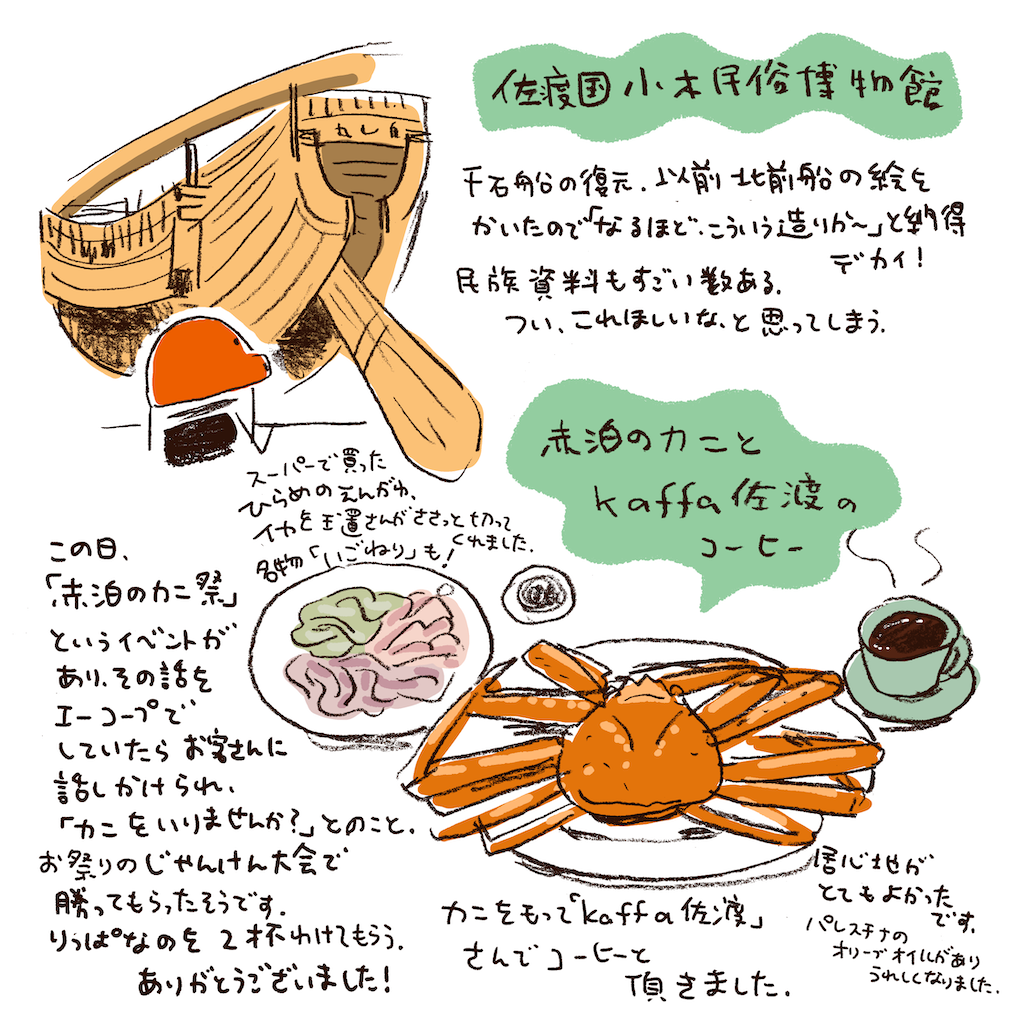 佐渡国小木民俗博物館
千石船の復元、以前北前船の絵を
かいたので「なるほど、こういう造りか〜」と納得
デカイ！
民族資料もすごい数ある。
つい、これほしいな、と思ってしまう。
赤泊のカニと
kaffa佐渡の
コーヒー
スーパーで買った
ひらめのえんがわ、
イカを玉置さんがささっと切って
くれました。
名物「いごねり」も！
この日、
「赤泊のカニ祭」
というイベントが
あり、その話を
エーコープで
していたらお客さんに
話しかけられ、
「カニをいりませんか？」とのこと。
お祭りのじゃんけん大会で
勝ってもらったそうです。
りっぱなのを2杯わけてもらう。
ありがとうございました！
カニをもって「kaffa佐渡」
さんでコーヒーと
頂きました。
居心地が
とてもよかった
です。
パレスチナの
オリーブオイルがあり
うれしくなりました。